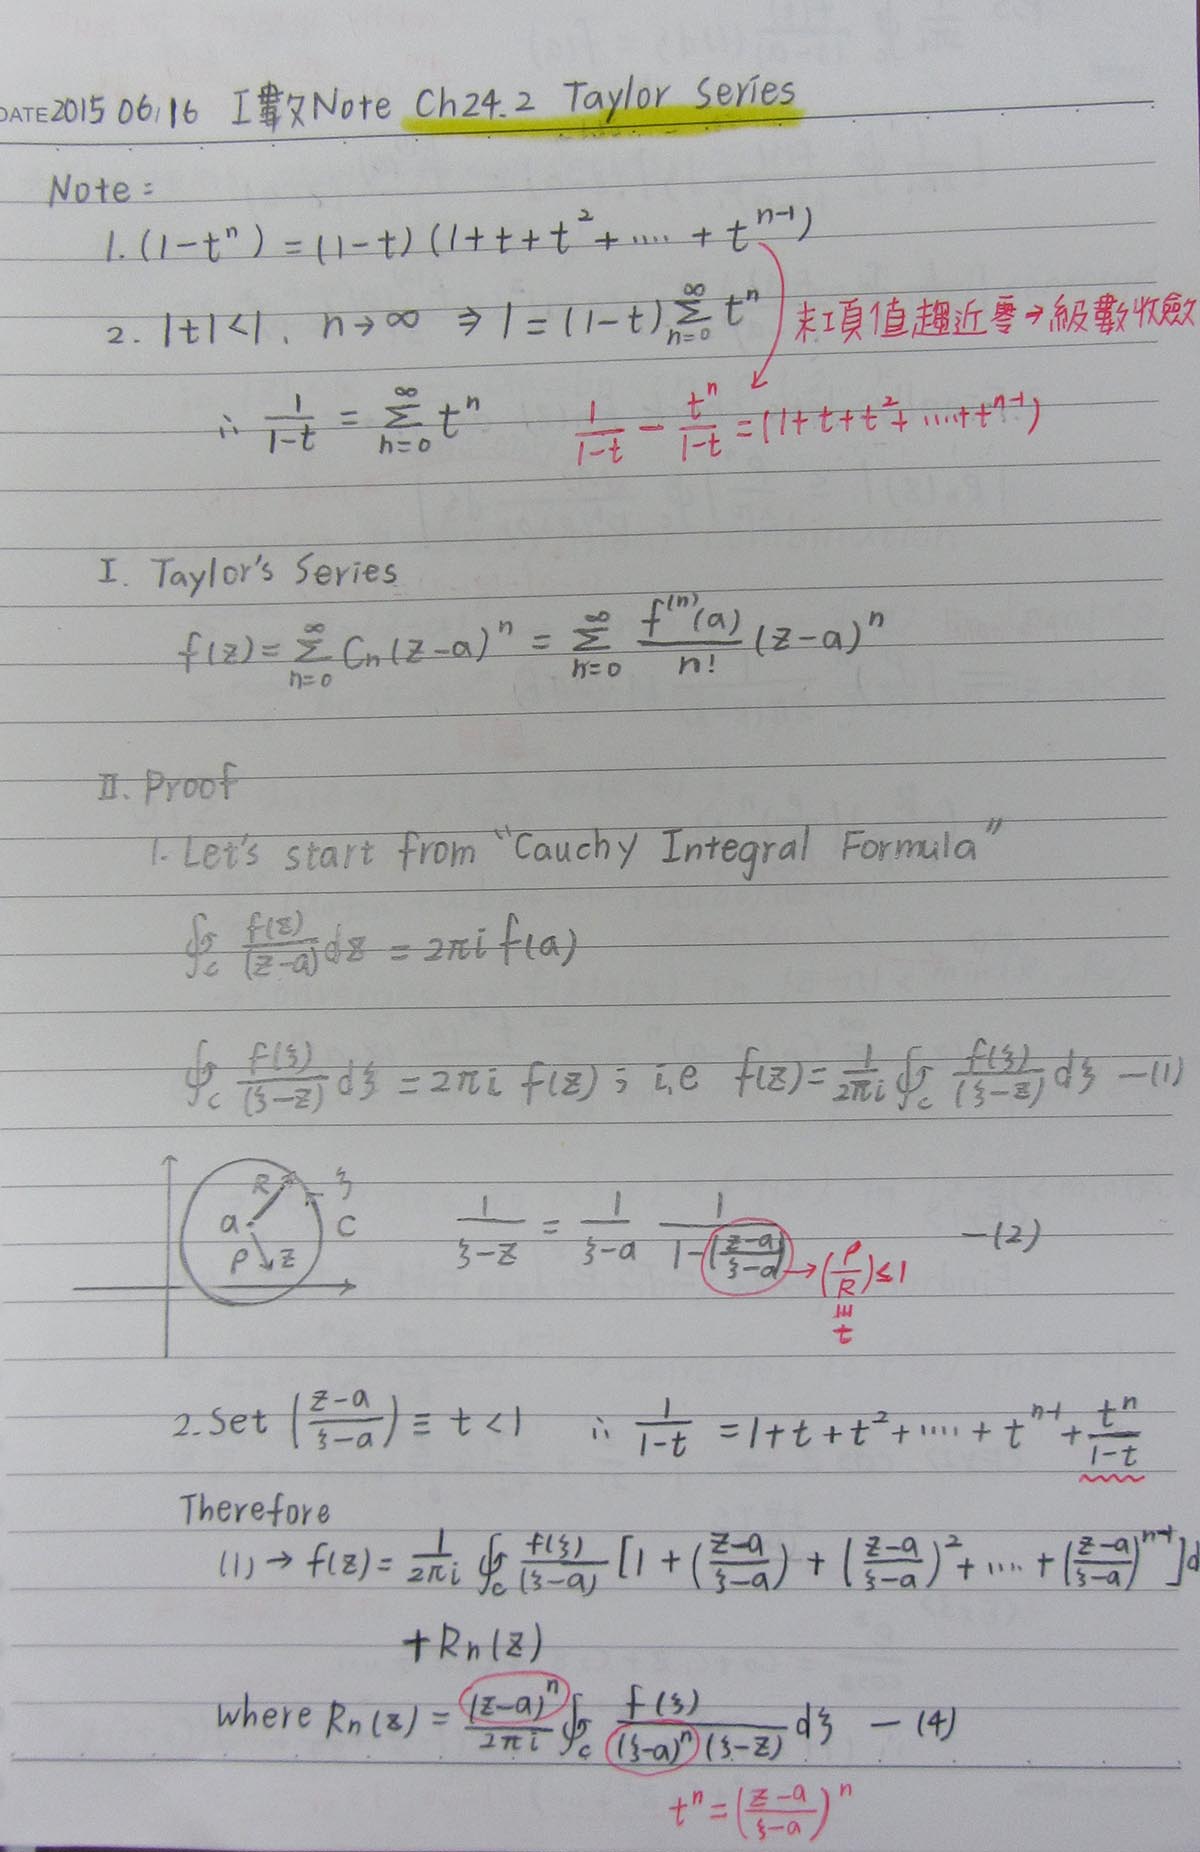 DATE 2015 06/16 工數Note Ch24.2 Taylor Series
Note:
1. (1-tⁿ) = (1-t)(1+t+t²+....+tⁿ⁻¹)
2. |t|<1, n→∞ ⇒ 1 = (1-t) ∑_{n=0}^{∞} tⁿ 末項值趨近零→級數收斂
∴ 1/(1-t) = ∑_{n=0}^{∞} tⁿ 1/(1-t) - tⁿ/(1-t) = (1+t+t²+....+tⁿ⁻¹)
I. Taylor's Series
f(z) = ∑_{n=0}^{∞} Cn(z-a)ⁿ = ∑_{n=0}^{∞} f⁽ⁿ⁾(a)/n! (z-a)ⁿ
II. Proof
1. Let's start from "Cauchy Integral Formula"
∮_c f(z)/(z-a) dz = 2πi f(a)
∮_c f(ξ)/(ξ-z) dξ = 2πi f(z) ; i,e f(z) = 1/2πi ∮_c f(ξ)/(ξ-z) dξ —(1)
R ξ
a C
ρ z
1/(ξ-z) = 1/(ξ-a) 1/(1-((z-a)/(ξ-a))) —(2)
→(ρ/R)≤1
≡
t
2. Set ((z-a)/(ξ-a)) ≡ t < 1 ∴ 1/(1-t) = 1+t+t²+....+tⁿ⁻¹+tⁿ/(1-t)
Therefore
(1)→ f(z) = 1/2πi ∮_c f(ξ)/(ξ-a) [1+((z-a)/(ξ-a))+((z-a)/(ξ-a))²+....+((z-a)/(ξ-a))ⁿ⁻¹]d
+Rn(z)
where Rn(z) = (z-a)ⁿ/2πi ∮_c f(ξ)/((ξ-a)ⁿ(ξ-z)) dξ —(4)
tⁿ = ((z-a)/(ξ-a))ⁿ